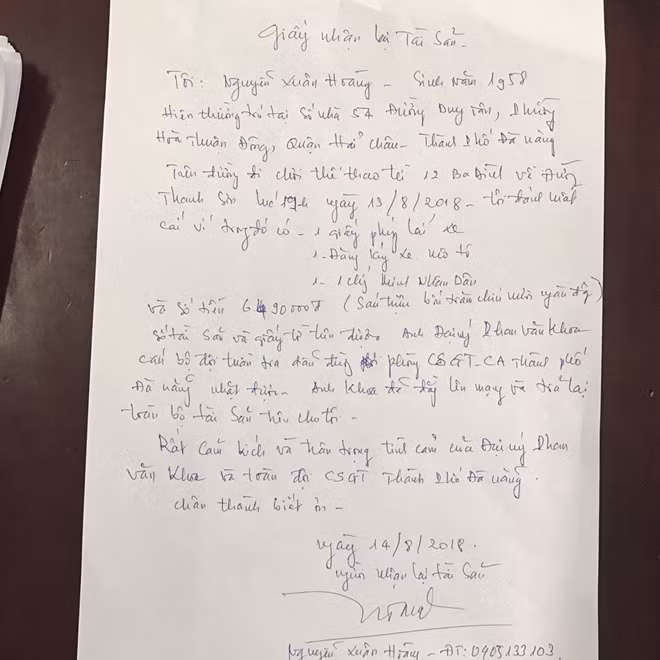 Giấy nhận lại Tài Sản -
Tôi: Nguyễn Xuân Hoàng - Sinh năm 1958
Hiện thường trú tại Số nhà 54 Đường Duy Tân, Phường
Hoà Thuận Đông, Quận Hải Châu - Thành Phố Đà Nẵng
Trên đường đi chơi thể thao từ 12 Ba Đình về Đường
Thanh Sơn lúc 19h ngày 13/8/2018 - tôi đánh mất
cái ví trong đó có - 1 giấy phép lái xe
1 - Đăng ký xe mô tô
1 - 1 chứng Minh Nhân Dân
và số tiền 6490000đ (Sáu triệu bốn trăm chín mươi ngàn đồng)
số tài Sản và giấy tờ trên được Anh Đại úy Phan Văn Khoa
cán bộ đội tuần tra dẫn đường phòng CSGT-CA Thành phố
Đà Nẵng nhặt được - Anh Khoa đã đăng lên mạng và trả lại
toàn bộ tài Sản trên cho tôi -
Rất Cảm kích và trân trọng tình cảm của Đại úy Phan
Văn Khoa và toàn đội CSGT Thành Phố Đà Nẵng.
chân thành biết ơn -
ngày 14/8/2018.
người nhận lại tài Sản
Nguyễn Xuân Hoàng - ĐT: 0905133103.